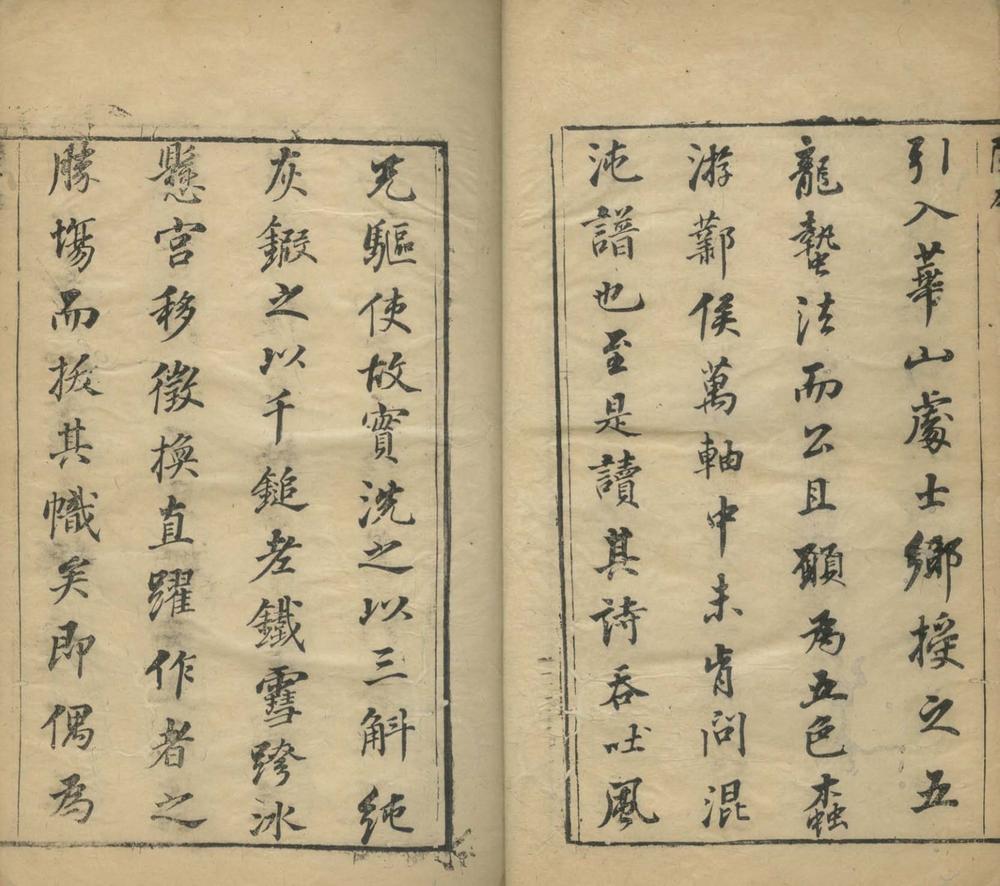 引入華山處士鄉授之五
龍蟄法而公且願為五色蠹
游鄴侯萬軸中未肯问混
沌譜也至是讀其詩吞吐風
驅使故實洗之以三斛純
灰鍛之以千鎚老鐵雪跨冰
懸宮移徵換直躍作者之
勝塲而拔其幟矣即偶為